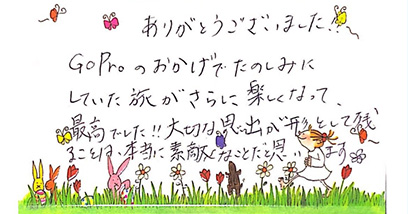 ありがとうございました!!
GoProのおかげでたのしみに
していた旅がさらに楽しくなって、
最高でした!!大切な思い出が形として残
ることは、本当に素敵なことだと思います